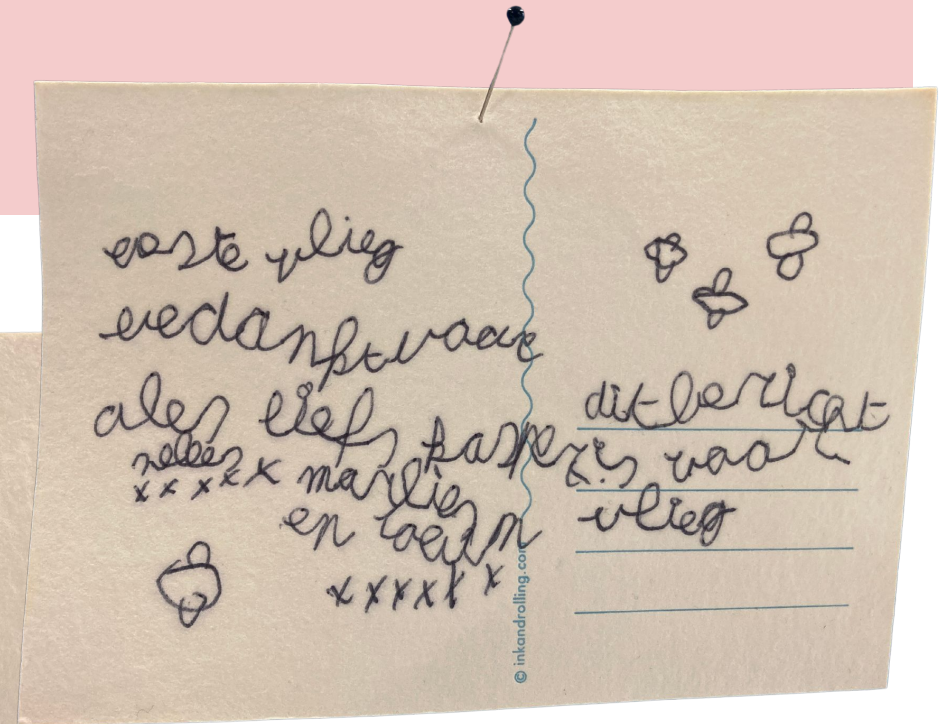 easte vlieg
vedanktvoor
ales liefs kasper
nelles
xxxxx marlies
en
xxxxxx
dit bericgt
is voor
vlieg
© inkandrolling.com